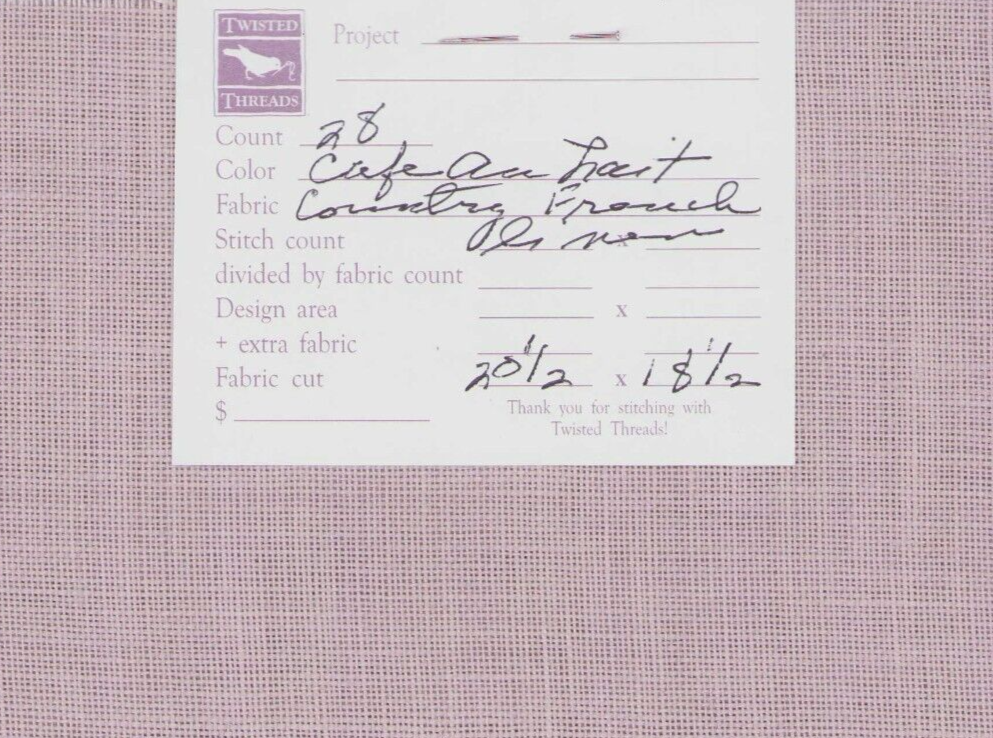 TWISTED
THREADS
Project
Count 28
Color Cafe Au Lait
Fabric Country French
Stitch count Linen x
divided by fabric count
Design area x
+ extra fabric
Fabric cut 20 1/2 x 18 1/2
$
Thank you for stitching with
Twisted Threads!